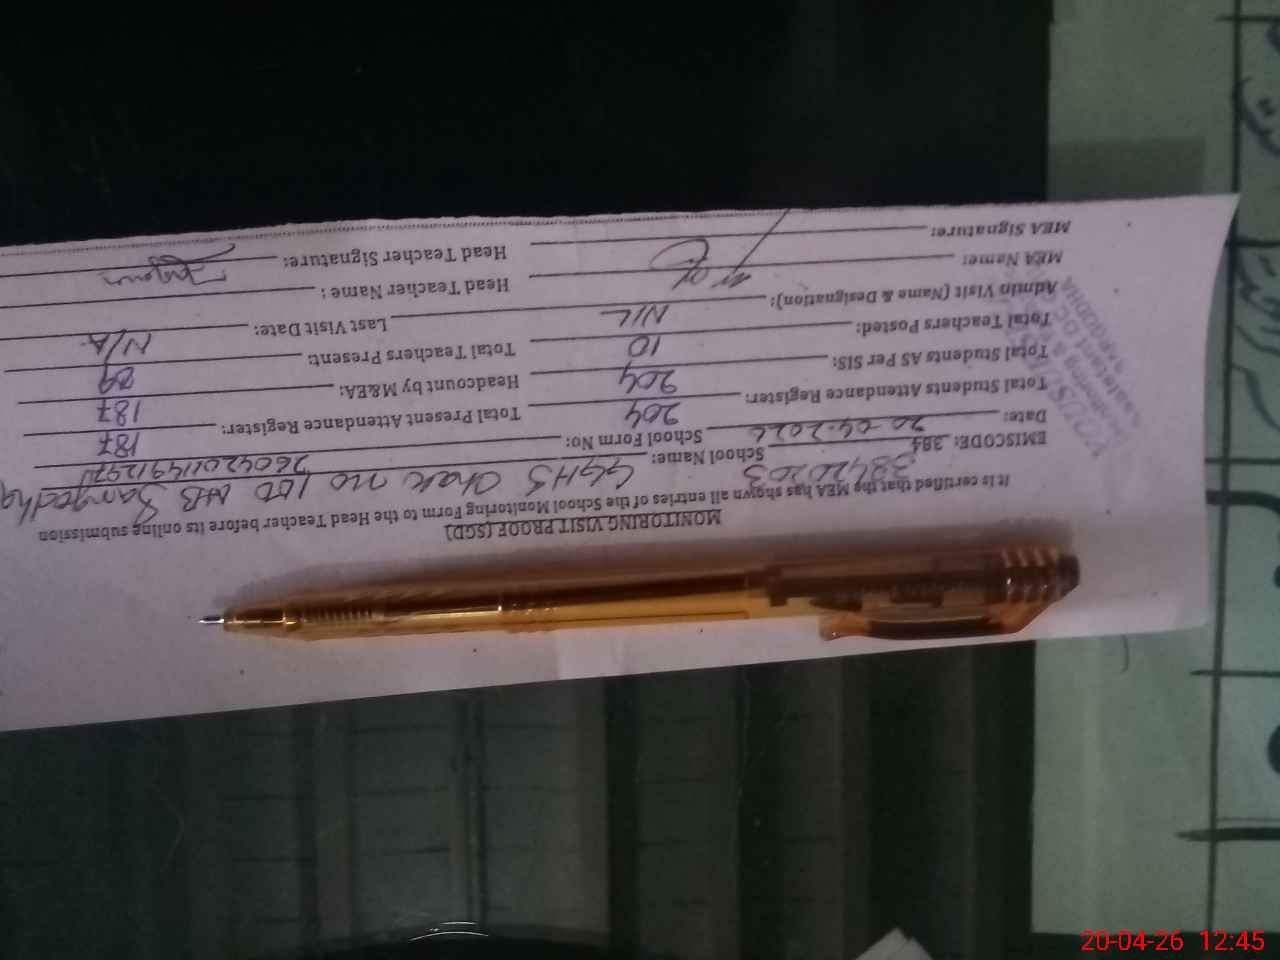 MONITORING VISIT PROOF (SGD)
It is certified that the MEA has shown all entries of the School Monitoring Form to the Head Teacher before its online submission
EMISCODE: 384 38420203 School Name: GGHS Chak no NB Sargodha
Date: 20-04-2026 School Form No:
Total Students Attendance Register: 204 Total Present Attendance Register: 187
Total Students AS Per SIS: 204 Headcount by M&EA: 187
Total Teachers Posted: 10 Total Teachers Present: 09
Admin Visit (Name & Designation): NIL Last Visit Date: N/A
MEA Name: Head Teacher Name:
MEA Signature: Head Teacher Signature:
SARGODHA
20-04-26 12:45